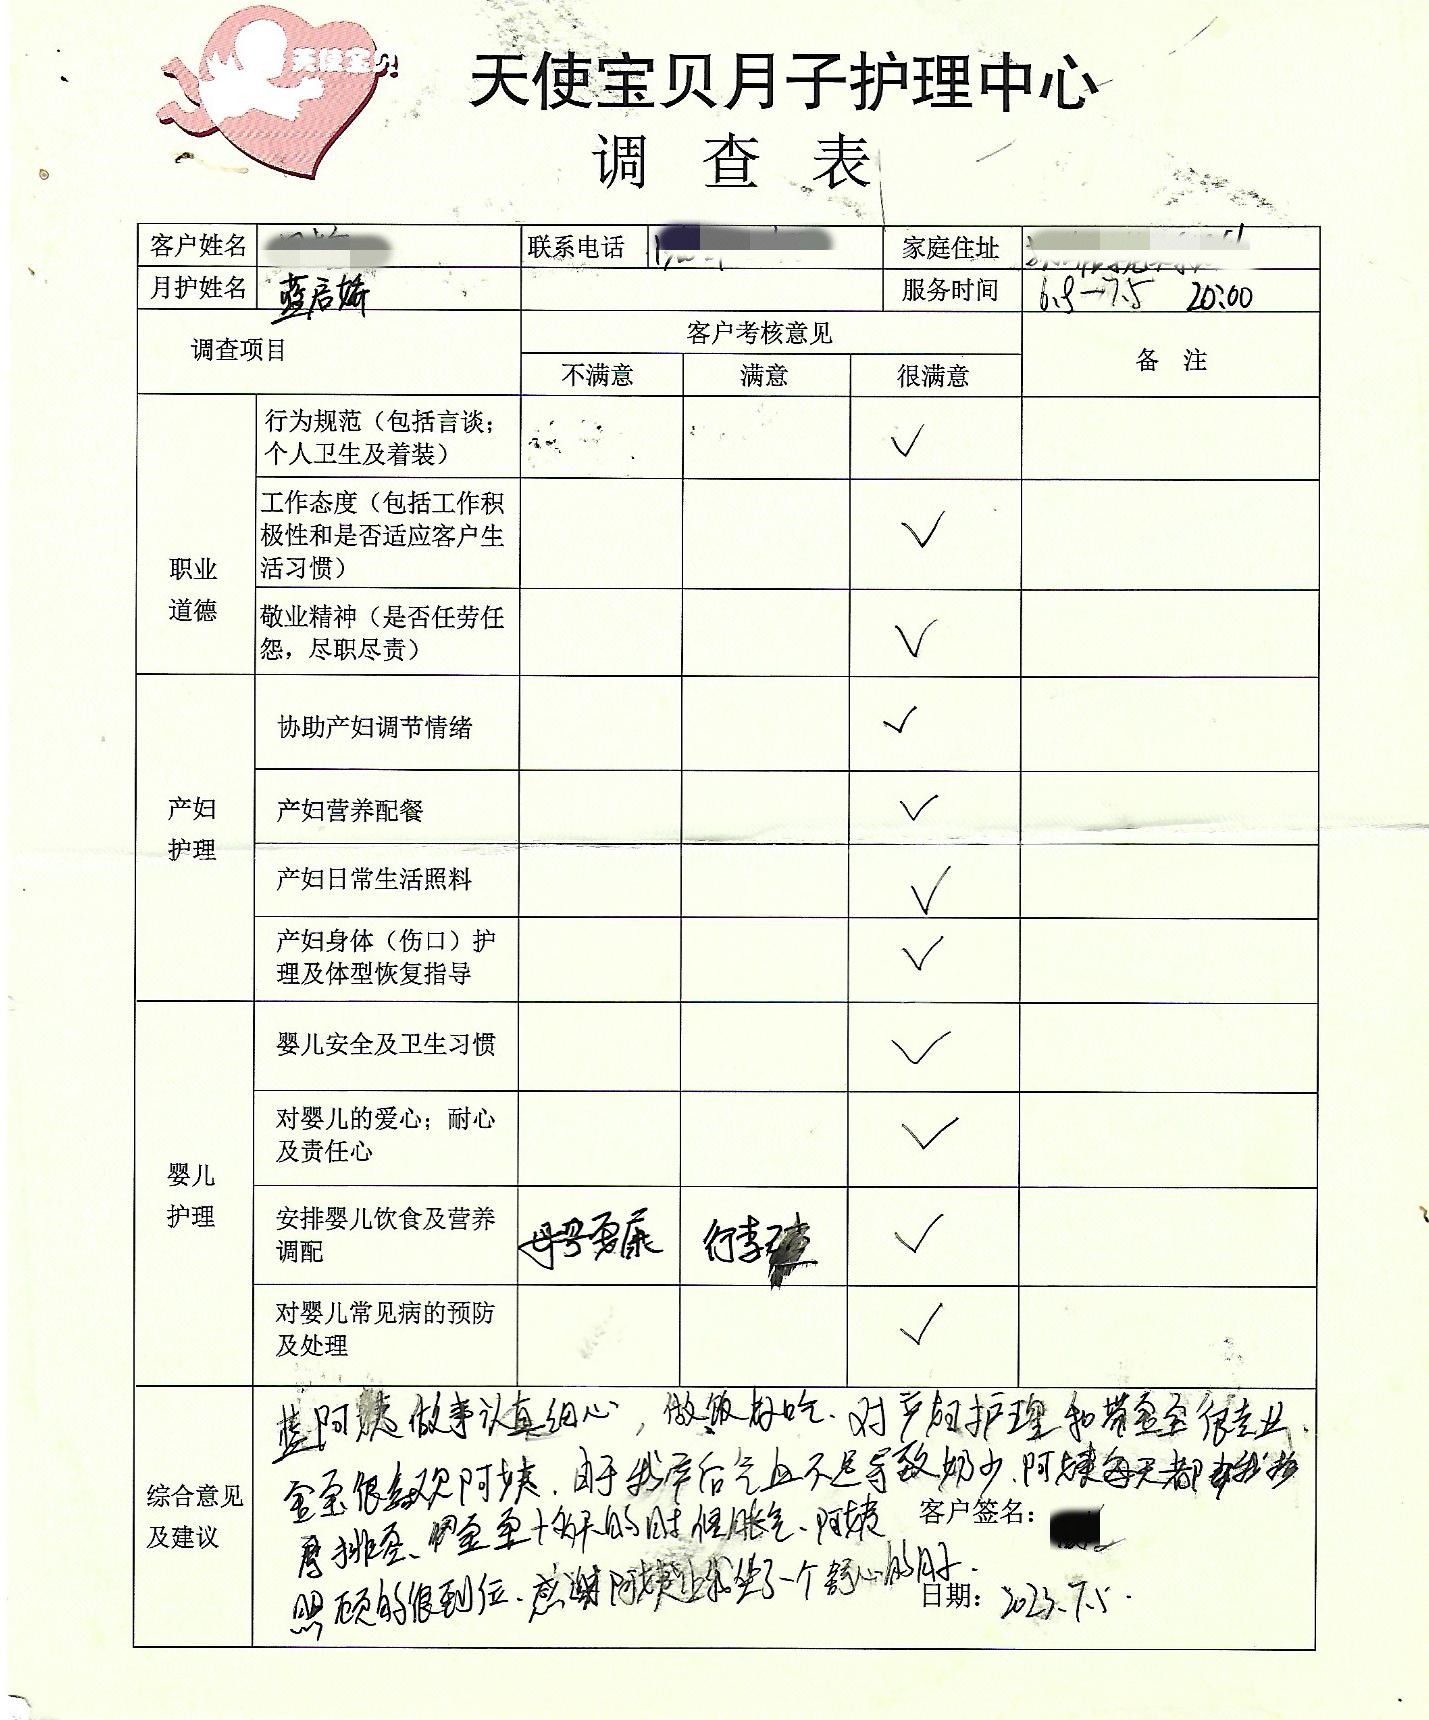 天使宝贝
天使宝贝月子护理中心
调 查 表
客户姓名 联系电话 家庭住址
月护姓名 蓝启娇 服务时间 6.9—7.5 20:00
调查项目 客户考核意见 备 注
不满意 满意 很满意
职业
道德
行为规范（包括言谈；
个人卫生及着装） ✓
工作态度（包括工作积
极性和是否适应客户生
活习惯） ✓
敬业精神（是否任劳任
怨，尽职尽责） ✓
产妇
护理
协助产妇调节情绪 ✓
产妇营养配餐 ✓
产妇日常生活照料 ✓
产妇身体（伤口）护
理及体型恢复指导 ✓
婴儿
护理
婴儿安全及卫生习惯 ✓
对婴儿的爱心；耐心
及责任心 ✓
安排婴儿饮食及营养
调配 ✓
对婴儿常见病的预防
及处理 ✓
综合意见
及建议
蓝阿姨做事认真细心，做饭好吃．对产妇护理和带宝宝很专业．
宝宝很喜欢阿姨．由于我产后气血不足导致奶少．阿姨每天都
宝宝十多天的时候胀气、阿姨
照顾的很到位．感谢阿姨让我坐了一个舒心的月子．
客户签名：
日期：2023.7.5．